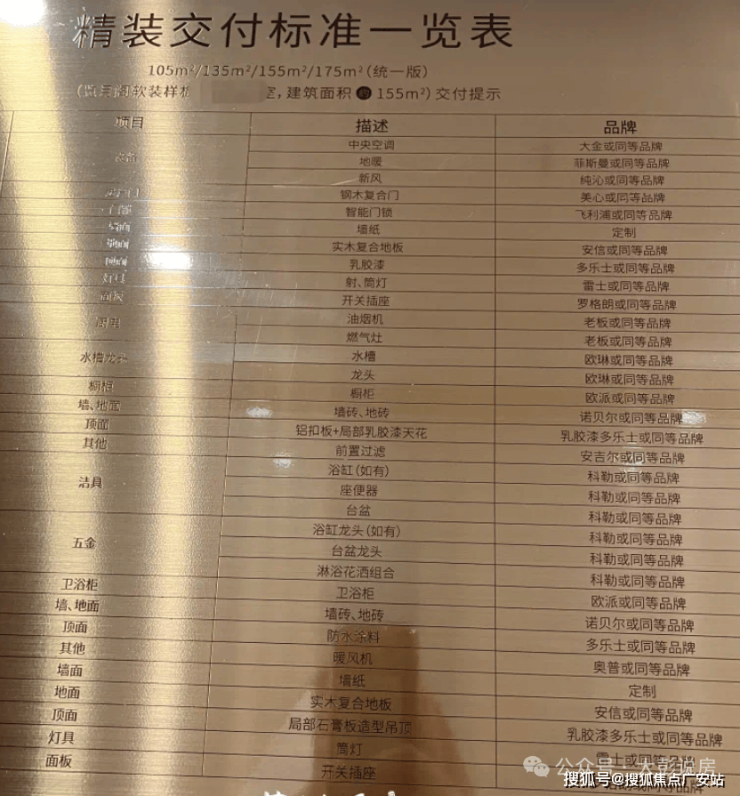 精装交付标准一览表
105m²/135m²/155m²/175m²(统一版)
软装样板 ,建筑面积 155m²)交付提示
项目 描述 品牌
中央空调 大金或同等品牌
地暖 菲斯曼或同等品牌
新风 纯沁或同等品牌
钢木复合门 美心或同等品牌
智能门锁 飞利浦或同等品牌
墙面 墙纸 定制
地面 实木复合地板 安信或同等品牌
乳胶漆 多乐士或同等品牌
灯具 射、筒灯 雷士或同等品牌
面板 开关插座 罗格朗或同等品牌
油烟机 老板或同等品牌
燃气灶 老板或同等品牌
水槽龙头 水槽 欧琳或同等品牌
龙头 欧琳或同等品牌
橱柜 橱柜 欧派或同等品牌
墙、地面 墙砖、地砖 诺贝尔或同等品牌
顶面 铝扣板+局部乳胶漆天花 乳胶漆多乐士或同等品牌
其他 前置过滤 安吉尔或同等品牌
洁具 浴缸(如有) 科勒或同等品牌
座便器 科勒或同等品牌
台盆 科勒或同等品牌
五金 浴缸龙头(如有) 科勒或同等品牌
台盆龙头 科勒或同等品牌
淋浴花洒组合 科勒或同等品牌
卫浴柜 卫浴柜 欧派或同等品牌
墙、地面 墙砖、地砖 诺贝尔或同等品牌
顶面 防水涂料 多乐士或同等品牌
其他 暖风机 奥普或同等品牌
墙面 墙纸 定制
地面 实木复合地板 安信或同等品牌
顶面 局部石膏板造型吊顶 乳胶漆多乐士或同等品牌
灯具 筒灯 雷士或同等品牌
面板 开关插座
公众号·大彭说房
搜狐号@搜狐焦点广安站